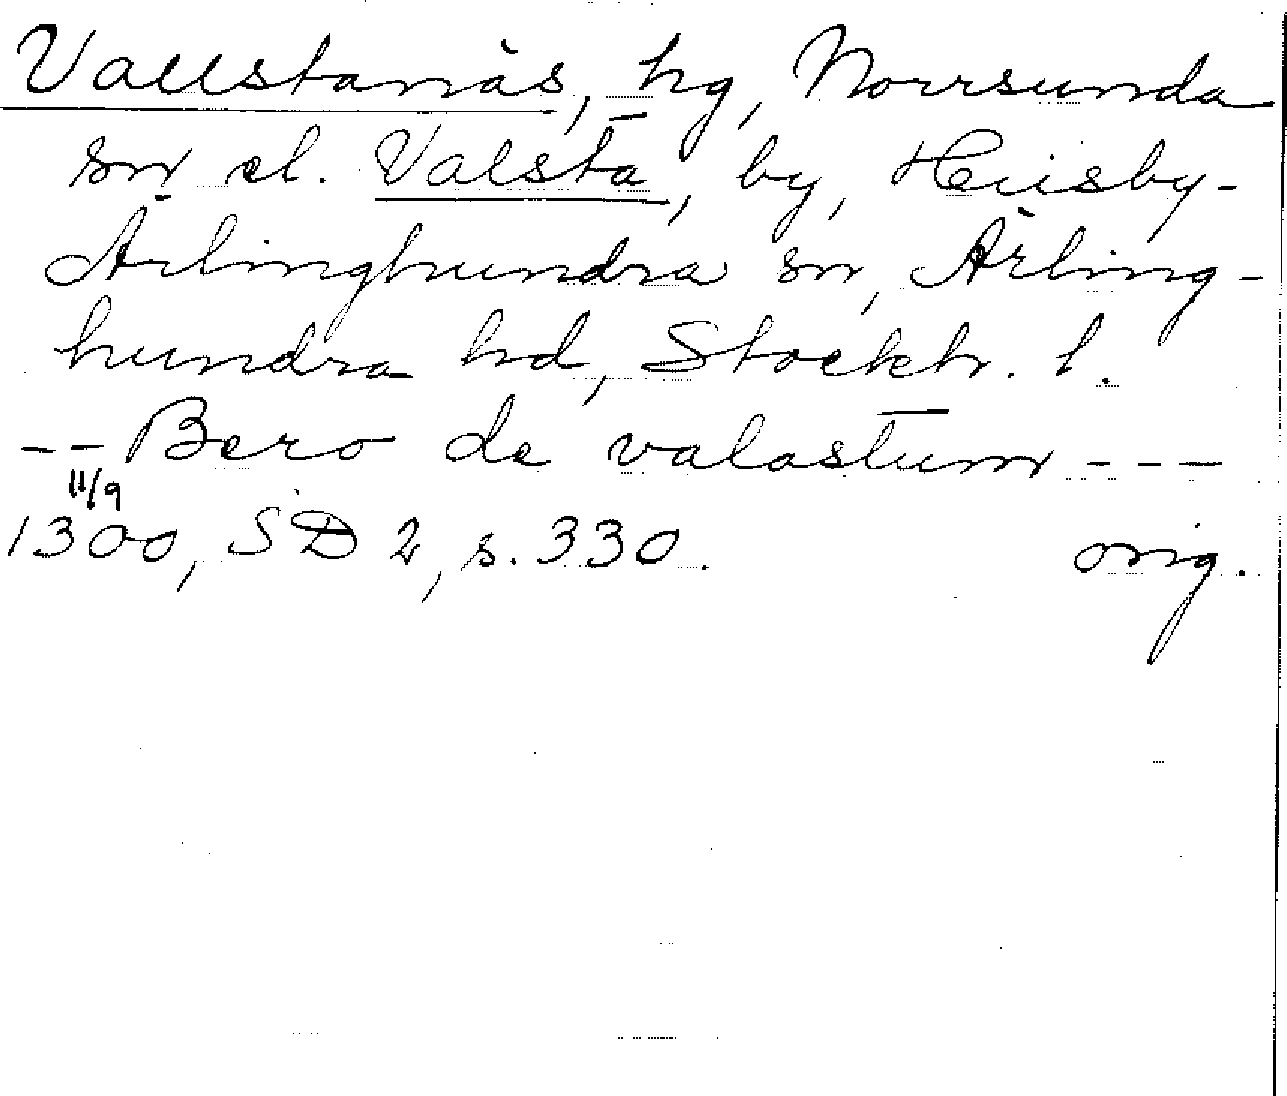 Vallstanäs, hg, Norrsunda
sn el. Valsta, by, Husby-
Ärlinghundra sn, Ärling-
hundra hd, Stockh. l.
-- Bero de valastum ---
11/9
1300, SD 2, s. 330. orig.